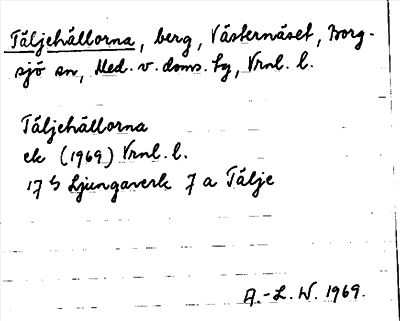 Täljehällorna, berg, Västernäset, Borg-
sjö sn, Med. v. doms. tg, Vrnl. l.
Täljehällorna
ek (1969) Vrnl. l.
17 G Ljungaverk 7 a Tälje
A.-L. W. 1969.